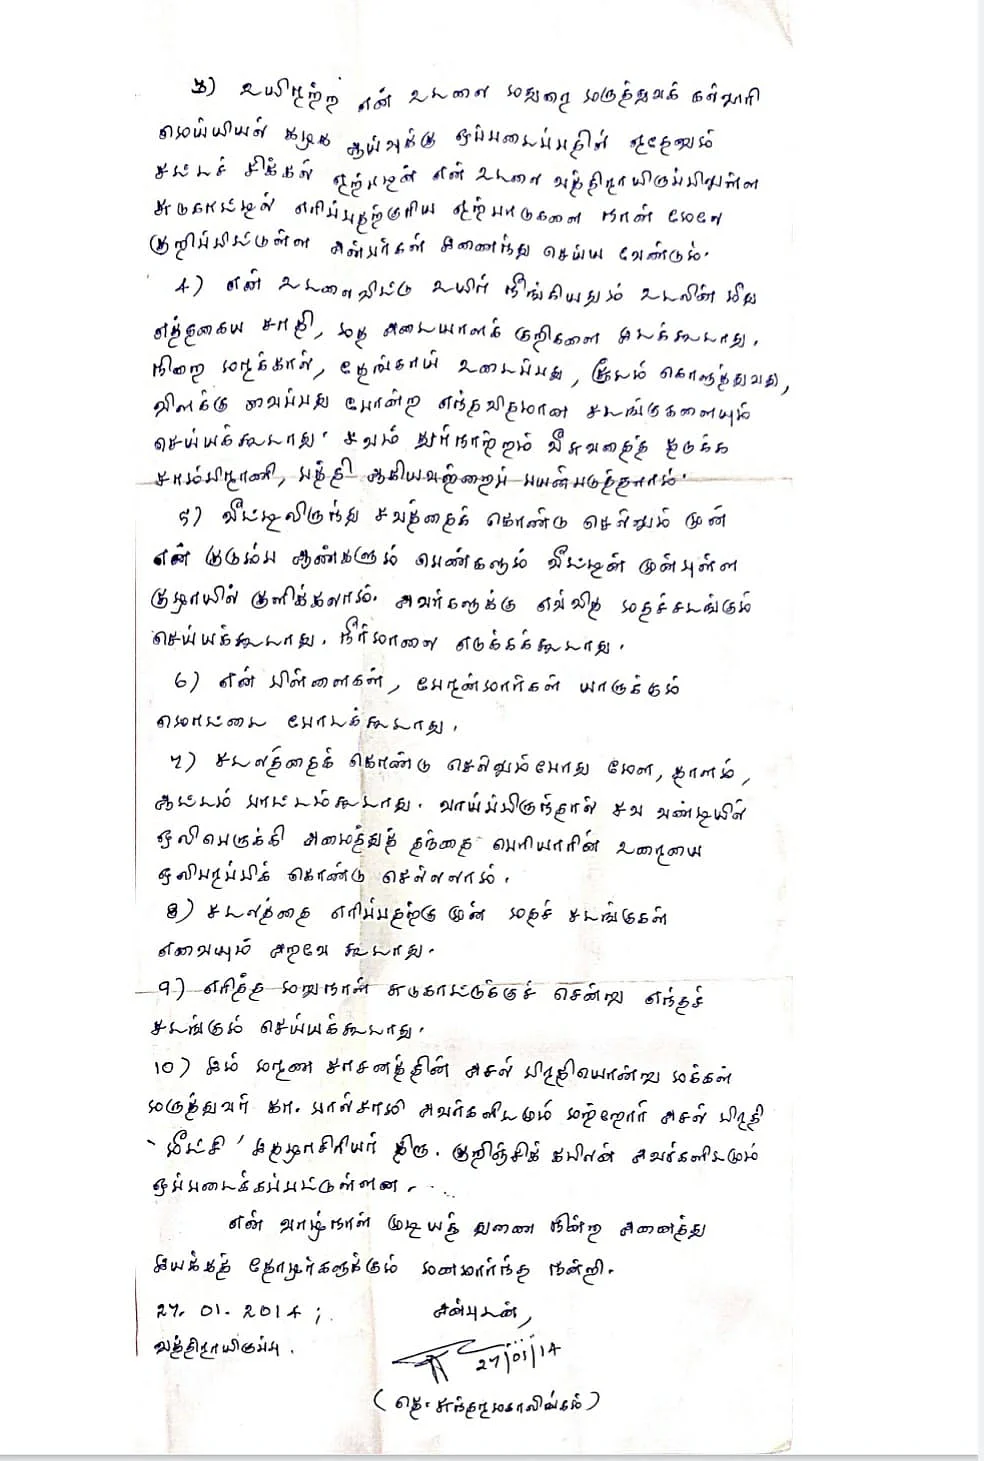 3) உயிரற்ற என் உடலை மதுரை மருத்துவக் கல்லூரி
மெய்யியல் கழக ஆய்வுக்கு ஒப்படைப்பதில் ஏதேனும்
சட்டச் சிக்கல் ஏற்படின் என் உடலை வத்திராயிருப்பிலுள்ள
சுடுகாட்டில் எரிப்பதற்குரிய ஏற்பாடுகளை நான் மேலே
குறிப்பிட்டுள்ள அன்பர்கள் இணைந்து செய்ய வேண்டும்.
4) என் உடலைவிட்டு உயிர் நீங்கியதும் உடலின் மீது
எத்தகைய சாதி, மத அடையாளக் குறிகளை இடக்கூடாது.
நிறை மரக்கால், தேங்காய் உடைப்பது, சூடம் கொளுத்துவது,
விளக்கு வைப்பது போன்ற எந்தவிதமான சடங்குகளையும்
செய்யக்கூடாது. சவம் துர்நாற்றம் வீசுவதைத் தடுக்க
சாம்பிராணி, பத்தி ஆகியவற்றைப் பயன்படுத்தலாம்.
5) வீட்டிலிருந்து சவத்தைக் கொண்டு செல்லும் முன்
என் குடும்ப ஆண்களும் பெண்களும் வீட்டின் முன்புள்ள
குழாயில் குளிக்கலாம். அவர்களுக்கு எவ்வித மதச்சடங்கும்
செய்யக்கூடாது. நீர்மாலை எடுக்கக்கூடாது.
6) என் பிள்ளைகள், பேரன்மார்கள் யாருக்கும்
மொட்டை போடக்கூடாது.
7) சடலத்தைக் கொண்டு செல்லும்போது மேள, தாளம்,
ஆட்டம் பாட்டம்கூடாது. வாய்ப்பிருந்தால் சவ வண்டியில்
ஒலிபெருக்கி அமைத்துத் தந்தை பெரியாரின் உரையை
ஒலிபரப்பிக் கொண்டு செல்லலாம்.
8) சடலத்தை எரிப்பதற்கு முன் மதச் சடங்குகள்
எவையும் அறவே கூடாது.
9) எரித்த மறுநாள் சுடுகாட்டுக்குச் சென்று எந்தச்
சடங்கும் செய்யக்கூடாது.
10) இம் மரண சாசனத்தின் அசல் பிரதியொன்று மக்கள்
மருத்துவர் கா. பால்சாமி அவர்களிடமும் மற்றோர் அசல் பிரதி
'மீட்சி' இதழாசிரியர் திரு. குறிஞ்சிக் கபிலன் அவர்களிடமும்
ஒப்படைக்கப்பட்டுள்ளன.
என் வாழ்நாள் முடியத் துணை நின்ற அனைத்து
இயக்கத் தோழர்களுக்கும் மனமார்ந்த நன்றி.
27. 01. 2014; அன்புடன்,
வத்திராயிருப்பு. 27/01/14
(தெ. சுந்தரமகாலிங்கம்)